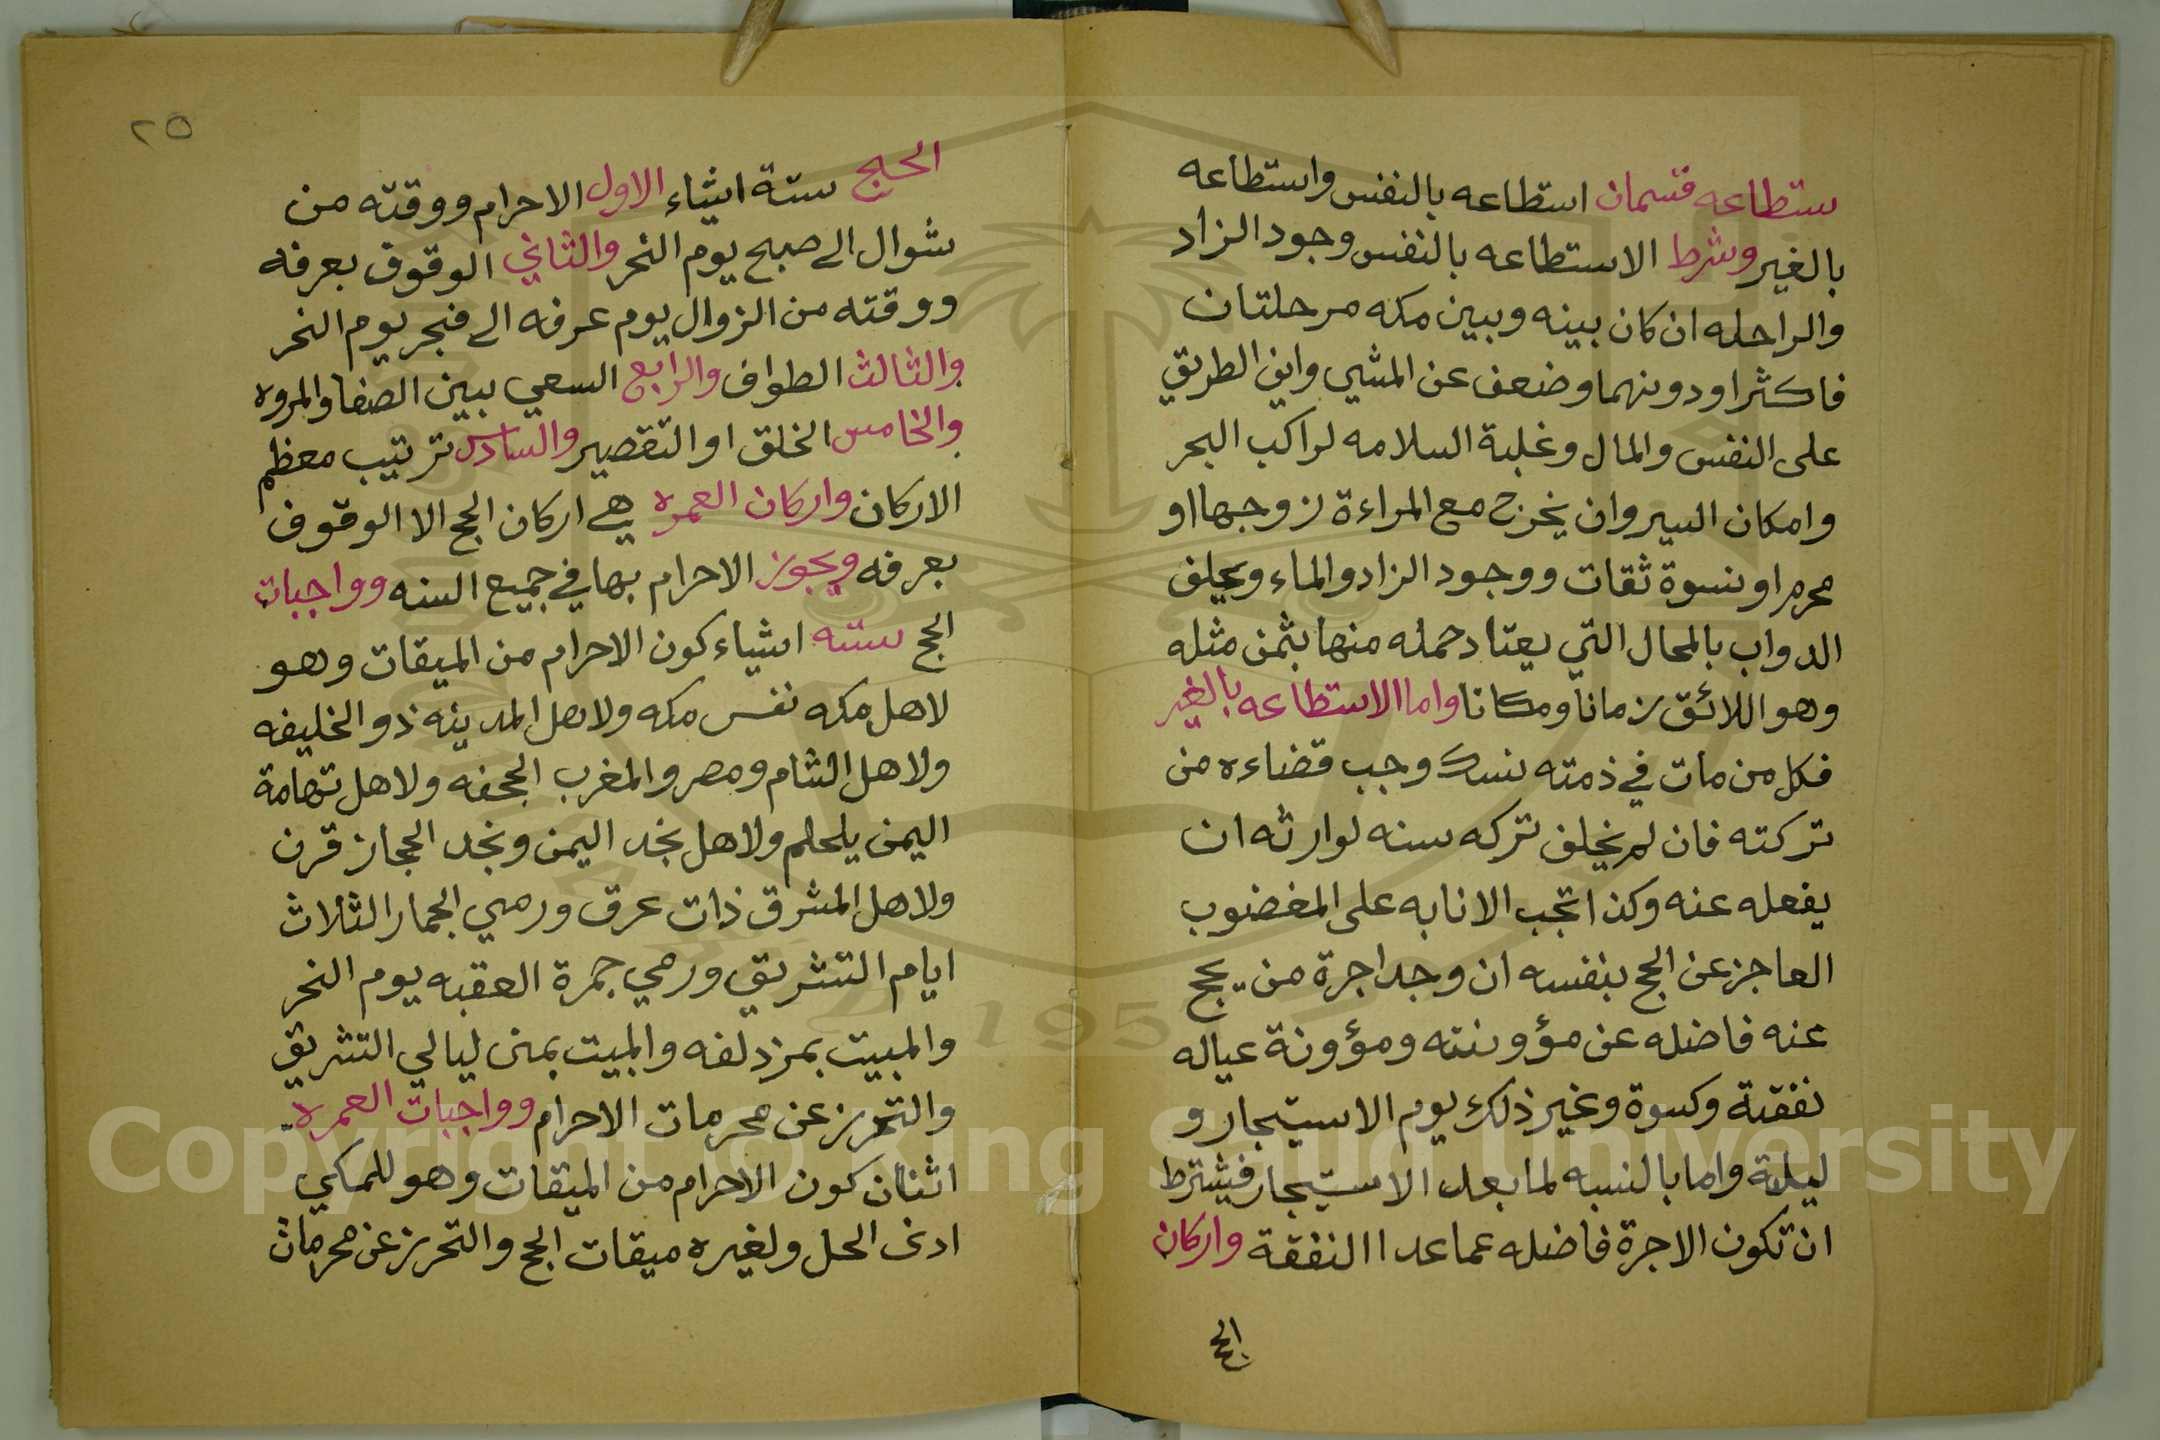 ستطاعه قسمان استطاعه بالنفس واستطاعه
بالغير وشرط الاستطاعه بالنفس وجود الزاد
والراحله ان كان بينه وبين مكه مرحلتان
فاكثر او دونهما وضعف عن المشي وامن الطريق
على النفس والمال وغلبة السلامه لراكب البحر
وامكان السير وان يخرج مع المراءة زوجها او
محرم او نسوة ثقات ووجود الزاد والماء وعلف
الدواب بالمحال التي يعتاد حمله منها بثمن مثله
وهو اللائق زمانا ومكانا واما الاستطاعه بالغير
فكل من مات في ذمته نسك وجب قضاءه من
تركته فان لم يخلف تركه سنه لوارثه ان
يفعله عنه وكذا تجب الانابه على المغضوب
العاجز عن الحج بنفسه ان وجد اجرة من يحج
عنه فاضله عن مؤونته ومؤونة عياله
نفقة وكسوة وغير ذلك يوم الاستيجار و
ليلة واما بالنسبه لما بعد الاستيجار فيشترط
ان تكون الاجرة فاضله عما عدا النفقة واركان
الحج
٢٥
الحج ستة اشياء الاول الاحرام ووقته من
شوال الى صبح يوم النحر والثاني الوقوف بعرفه
ووقته من الزوال يوم عرفه الى فجر يوم النحر
والثالث الطواف والرابع السعي بين الصفا والمروه
والخامس الحلق او التقصير والسادس ترتيب معظم
الاركان واركان العمره هي اركان الحج الا الوقوف
بعرفه ويجوز الاحرام بها في جميع السنه وواجبات
الحج سته اشياء كون الاحرام من الميقات وهو
لاهل مكه نفس مكه ولاهل المدينه ذو الخليفه
ولاهل الشام ومصر والمغرب الجحفه ولاهل تهامة
اليمن يلملم ولاهل نجد اليمن ونجد الحجاز قرن
ولاهل المشرق ذات عرق ورمي الجمار الثلاث
ايام التشريق ورمي جمرة العقبه يوم النحر
والمبيت بمزدلفه والمبيت بمنى ليالي التشريق
والتحرز عن محرمات الاحرام وواجبات العمره
اثنان كون الاحرام من الميقات وهو للمكي
ادنى الحل ولغيره ميقات الحج والتحرز عن محرمات
Copyright © King Saud University
1957